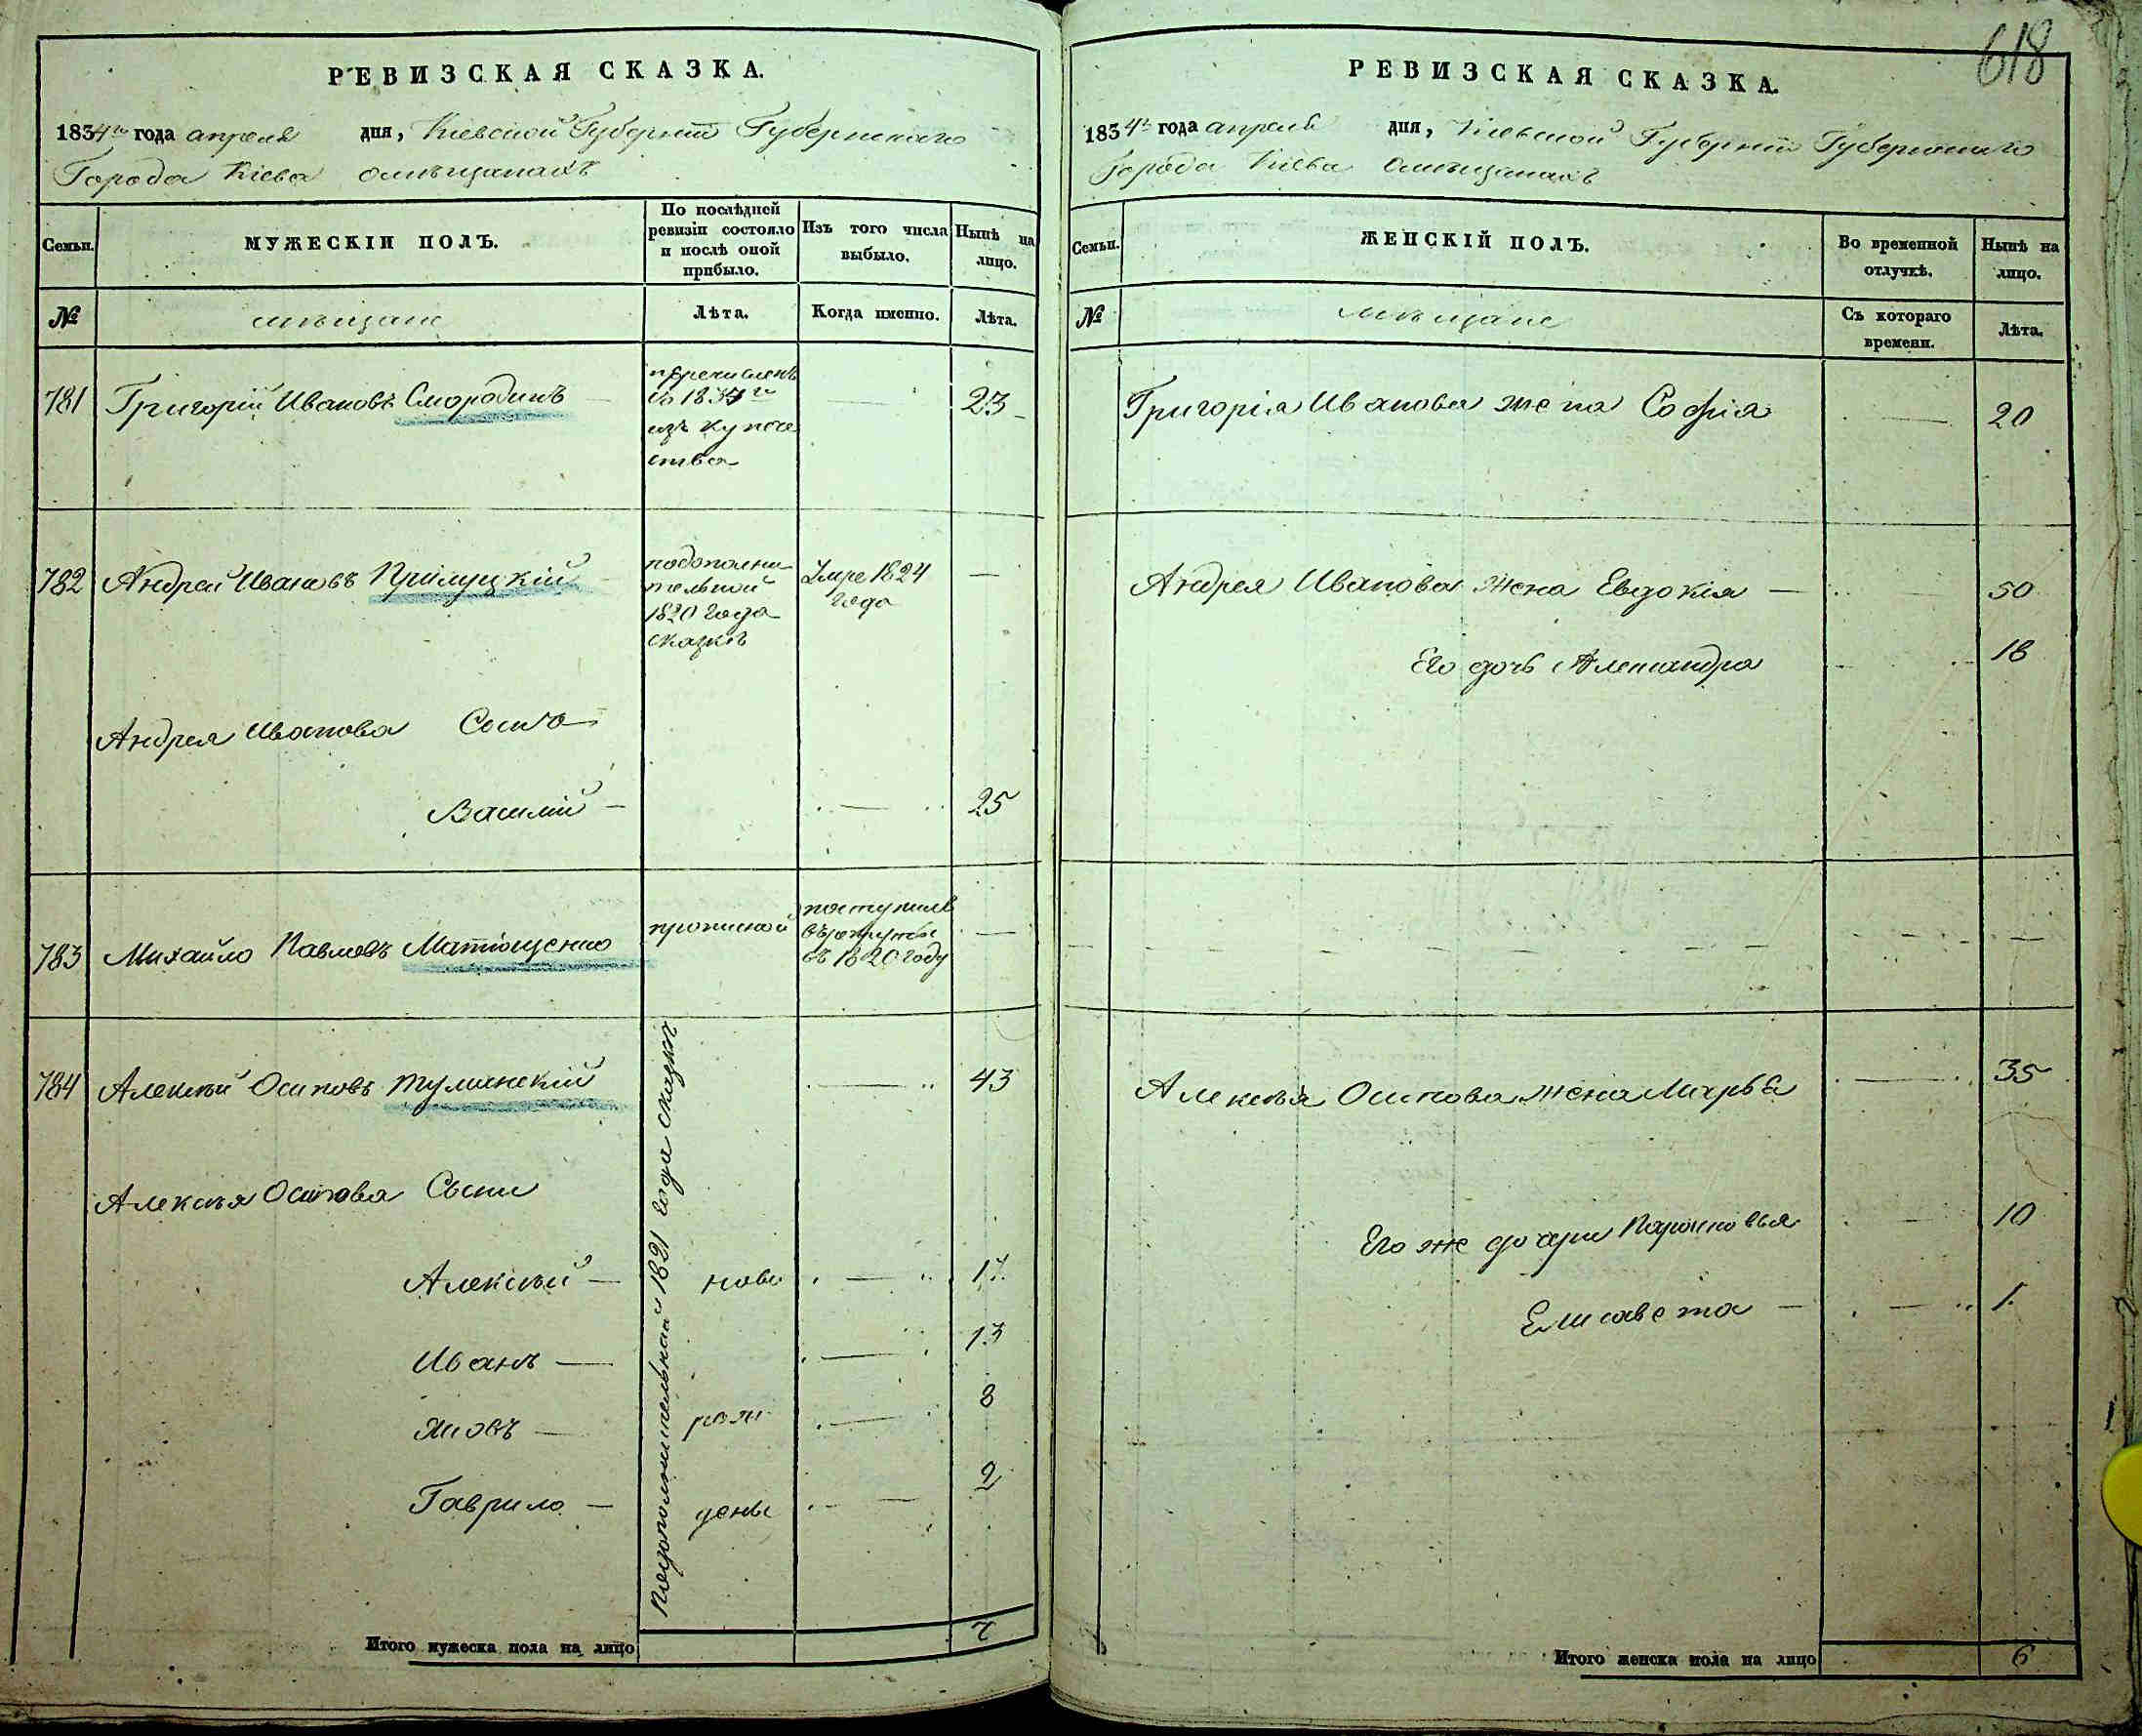 РЕВИЗСКАЯ СКАЗКА.
1834го года апреля дня, Кіевской Губерніи Губернскаго
Города Кіева омѣщанахъ
Семьи.
МУЖЕСКІИ ПОЛЪ.
По послѣдней ревизіи состояло и послѣ оной прибыло.
Изъ того числа выбыло.
Нынѣ на лицо.
№
мѣщане
Лѣта.
Когда именно.
Лѣта.
781 Григорій Ивановъ Смородинъ
перечисленъ
въ 1834го
изъ купече
ства
23
782 Андрей Ивановъ Прилуцкій
подополни
тельной
1820 года
сказкѣ
Умре 1824
года
Андрея Иванова Сынъ
Василій 25
783 Михайло Павловъ Матющенко
прописной
поступилъ
въ рекруты
въ 1820 году
784 Алексѣй Осиповъ Тулинскій 43
Подополнительной 1821 года сказкѣ
Алексѣя Осипова Сыни
Алексѣй ново 17.
Иванъ 13
Яковъ рож 8
Гаврило дены 2
Итого мужеска пола на лицо 7
618
РЕВИЗСКАЯ СКАЗКА.
1834го года апреля дня, Кіевской Губерніи Губернскаго
Города Кіева омѣщанахъ
Семьи.
ЖЕНСКІЙ ПОЛЪ.
Во временной отлучкѣ.
Нынѣ на лицо.
№
мѣщане
Съ котораго времени.
Лѣта.
Григорія Иванова жена Софія 20
Андрея Иванова жена Евдокія 50
Его дочь Александра 18
Алексѣя Осипова жена Марфа 35
Его же дочери 10
Елисавета 1.
Итого женска пола на лицо 6